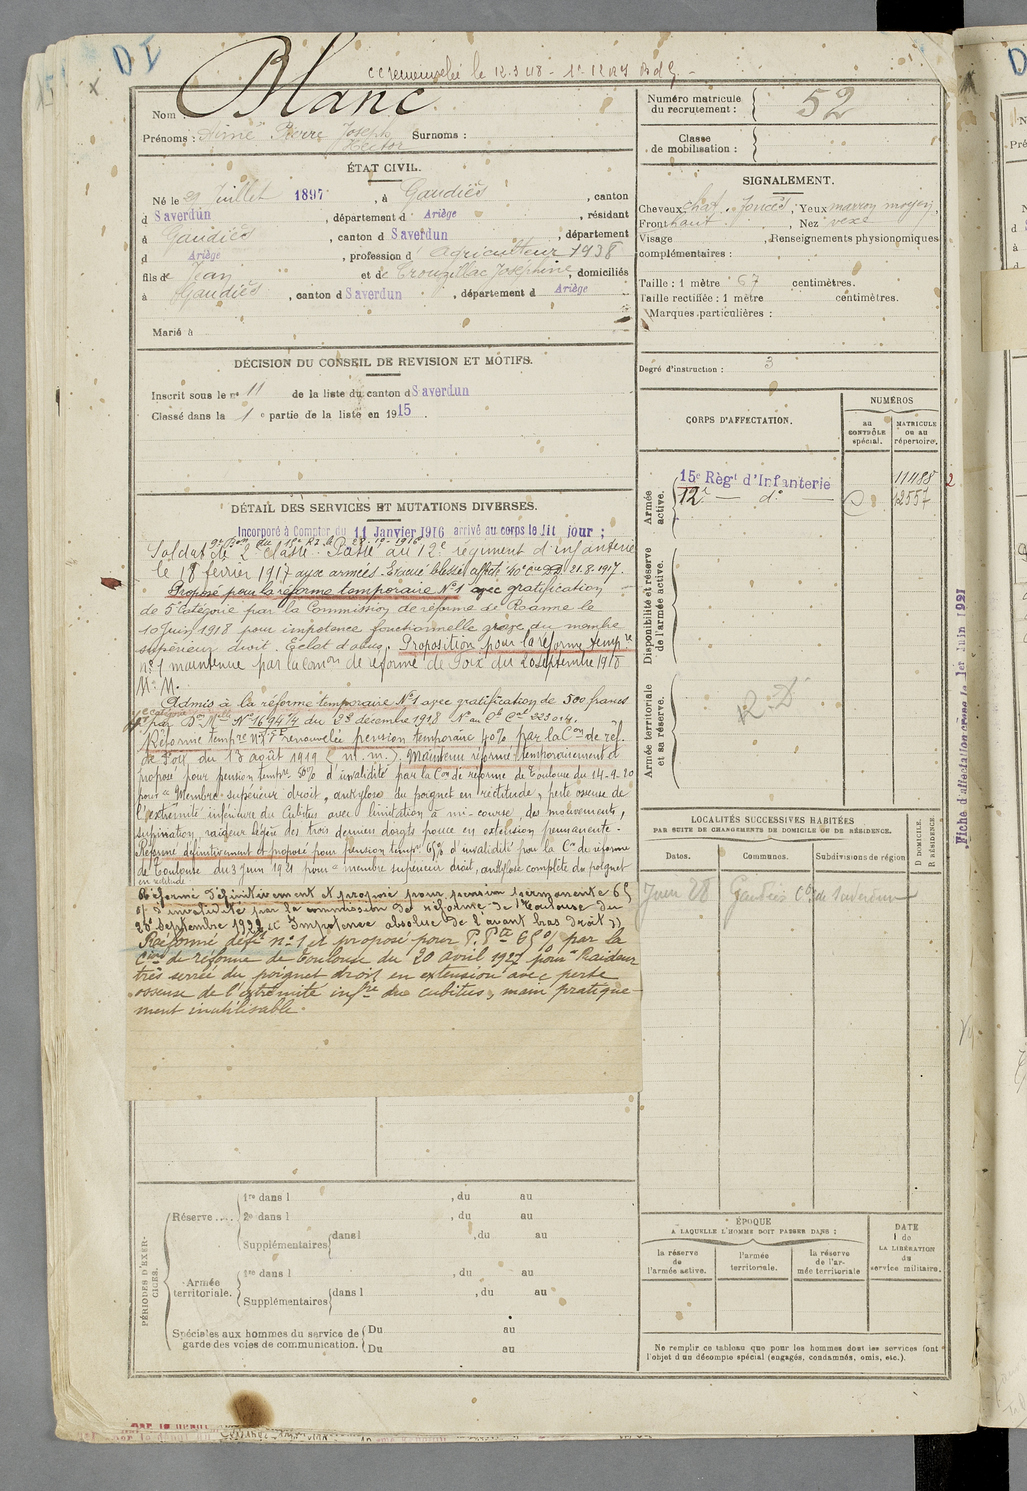 D I
Blanc
Nom
Prénoms : Aimé Pierre Joseph Surnoms :
Hector
Numéro matricule
du recrutement : 52
Classe
de mobilisation :
ÉTAT CIVIL.
Né le Juillet 1897, à Gaudiès, canton
d Saverdun, département d Ariège, résidant
à Gaudiès, canton d Saverdun, département
d Ariège, profession d agriculteur 1938
fils de Jean et de Crouzillac Joséphine, domiciliés
à Gaudiès, canton d Saverdun, département d Ariège
Marié à
SIGNALEMENT.
Cheveux chat. foncés, Yeux marron moyen,
Front haut, Nez vexe
Visage, Renseignements physionomiques
complémentaires :
Taille : 1 mètre 67 centimètres.
Taille rectifiée : 1 mètre centimètres.
Marques particulières :
Degré d'instruction : 3
DÉCISION DU CONSEIL DE REVISION ET MOTIFS.
Inscrit sous le n° 11 de la liste du canton d Saverdun
Classé dans la 1e partie de la liste en 1915.
DÉTAIL DES SERVICES ET MUTATIONS DIVERSES.
Incorporé à Compter du 11 Janvier 1916 arrivé au corps le dit jour ;
Soldat de 2e classe. Passé au 12e régiment d'infanterie
le 18 février 1917 aux armées. Evacué blessé 21.8.1917
Proposé pour la réforme temporaire N°1 avec gratification
de 5e catégorie par la Commission de réforme de Roanne le
10 Juin 1918 pour impotence fonctionnelle grave du membre
supérieur droit. Eclat d'obus. Proposition pour la réforme tempre
n°1 maintenue par la Comon de réforme de Foix du 20 septembre 1918
N. M.
Admis à la réforme temporaire N°1 avec gratification de 500 francs
par Don Mlle N° 169474 du 23 décembre 1918 N° au Cle Cal 223014.
Réforme tempre n°1 renouvelée pension temporaire 40% par la Con de réf.
de Foix du 13 août 1919 (m. m.). Maintenu réformé temporairement et
proposé pour pension tempre 50% d'invalidité par la Con de réforme de Toulouse du 14-9-20
pour "Membre supérieur droit, ankylose du poignet en rectitude, perte osseuse de
l'extrémité inférieure du Cubitus avec limitation à mi-course, des mouvements,
supination, raideur légère des trois derniers doigts pouce en extension permanente.
Réformé définitivement et proposé pour pension tempre 65% d'invalidité par la Con de réforme
de Toulouse du 3 juin 1921 pour "membre supérieur droit, ankylose complète du poignet
en rectitude
Réformé définitivement et proposé pour pension permanente 65
% d'invalidité par la commission de réforme de Toulouse du
septembre 1922 Impotence absolue de l'avant bras droit
Réformé défnt n°1 et proposé pour P. Pte 65% par la
Cion de réforme de Toulouse du 20 avril 1927 pour "Raideur
très serrée du poignet droit en extension avec perte
osseuse de l'extrémité infre du cubitus, main pratique-
ment inutilisable.
CORPS D'AFFECTATION.
NUMÉROS
au
CONTRÔLE
spécial.
MATRICULE
ou au
répertoire.
Armée
active.
15e Régt d'Infanterie 11488
12e — d° — 12557
Disponibilité et réserve
de l'armée active.
Armée territoriale
et sa réserve.
R.D
Fiche d'affectation créée le 1er Juin 1921
LOCALITÉS SUCCESSIVES HABITÉES
PAR SUITE DE CHANGEMENTS DE DOMICILE OU DE RÉSIDENCE.
Dates.
Communes.
Subdivisions de région
D DOMICILE.
R RÉSIDENCE.
Juin 28 Gaudiès
PÉRIODES D'EXER-
CICES.
Réserve..... 1re dans l , du au
2e dans l , du au
Supplémentaires dans l , du au
Armée
territoriale. 1re dans l , du au
Supplémentaires dans l , du au
Spéciales aux hommes du service de
garde des voies de communication. Du au
Du au
ÉPOQUE
A LAQUELLE L'HOMME DOIT PASSER DANS :
la réserve
de
l'armée active.
l'armée
territoriale.
la réserve
de l'ar-
mée territoriale
DATE
de
LA LIBÉRATION
du
service militaire.
Ne remplir ce tableau que pour les hommes dont les services font
l'objet d'un décompte spécial (engagés, condamnés, omis, etc.).